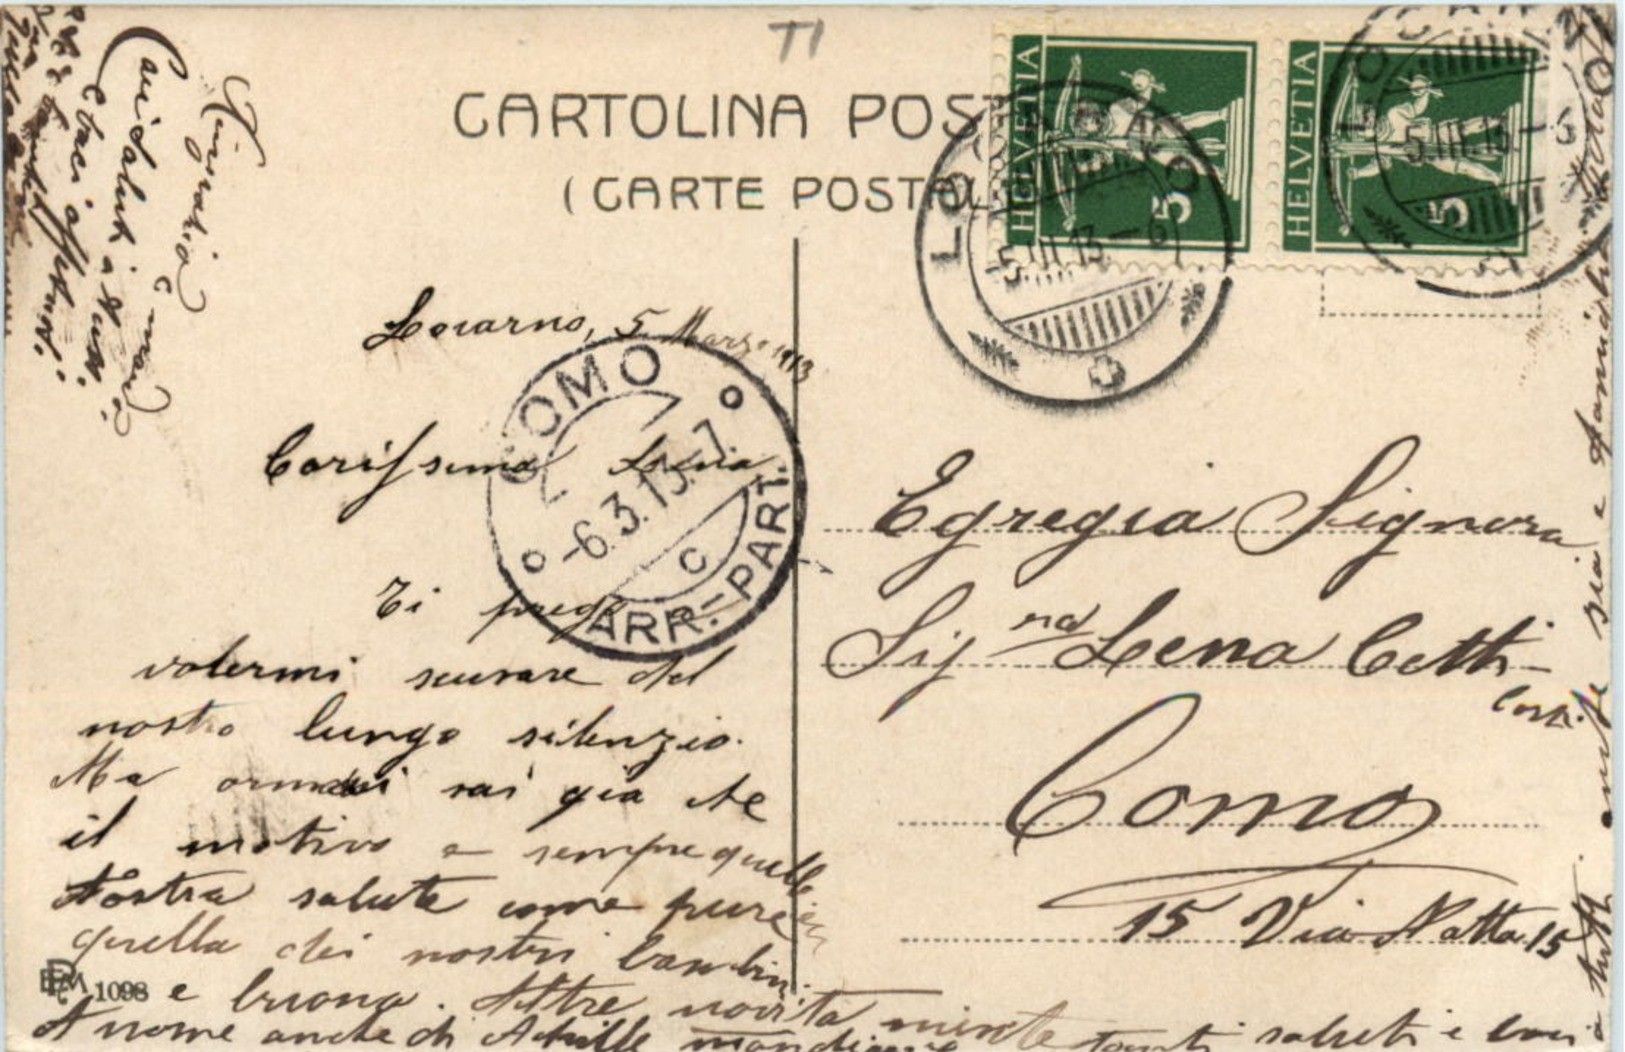 TI
CARTOLINA POST
(CARTE POSTAL
HELVETIA
5
HELVETIA
5
LOCARNO
-5.III.13.-6
5.III.13.-6
Locarno, 5 Marzo 1913
COMO
-6.3.13.-7.
C
ARR.-PART.
Carissima Lena
Ti prego a
volermi scusare del
nostro lungo silenzio.
Ma ormai sai già che
il motivo e sempre quello
Nostra salute come pure
quella dei nostri bambini
e buona. Altre novità niente
A nome anche di Achille tanti saluti e baci
a tutti
1098
Egregia Signora
Sigra Lena Cetti
Como
15 Via Natta 15
Cari saluti
e baci